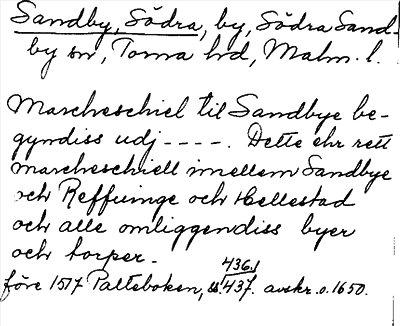 Sandby, Södra, by, Södra Sand-
by sn, Torna hd, Malm. l.
Marcheschiel til Sandbye be-
gyndiss udj ----. Dette ehr rett
marcheschiell imellem Sandbye
och Reffuinge och Hellestad
och alle omliggendiss byer
och torper.
före 1517 Palteboken, s. 436,
437. avskr. o. 1650.